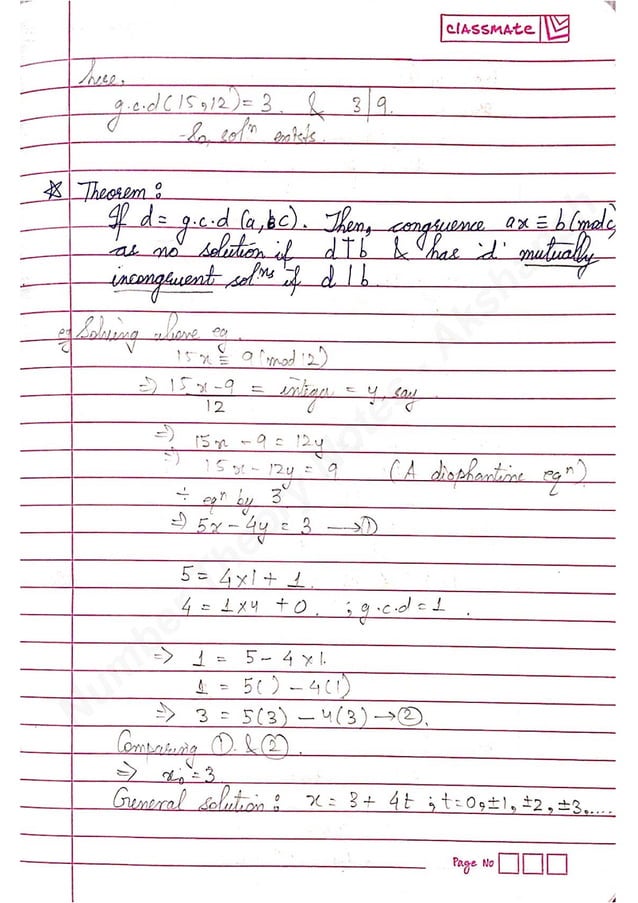 classmate
here,
g.c.d(15,12) = 3. & 3|9.
So, solⁿ exists.
☆ Theorem :
If d = g.c.d (a, c). Then, congruence ax ≡ b(mod c)
as no solution if d∤b & has 'd' mutually
incongruent solⁿˢ if d | b.
eg Solving above eg.
15x ≡ 9(mod 12)
⇒ 15x-9 = integer = y, say.
12
⇒ 15x - 9 = 12y
⇒ 15x - 12y = 9 (A diophantine eqⁿ)
÷ eqⁿ by 3
⇒ 5x - 4y = 3 → ①
5 = 4×1 + 1.
4 = 1×4 + 0. ; g.c.d = 1.
⇒ 1 = 5 - 4×1.
1 = 5() - 4(1)
⇒ 3 = 5(3) - 4(3) → ②.
Comparing ①. & ②.
⇒ x₀ = 3
General solution : x = 3 + 4t ; t = 0, ±1, ±2, ±3, ....
Page No
Number Theory Notes - Akshar